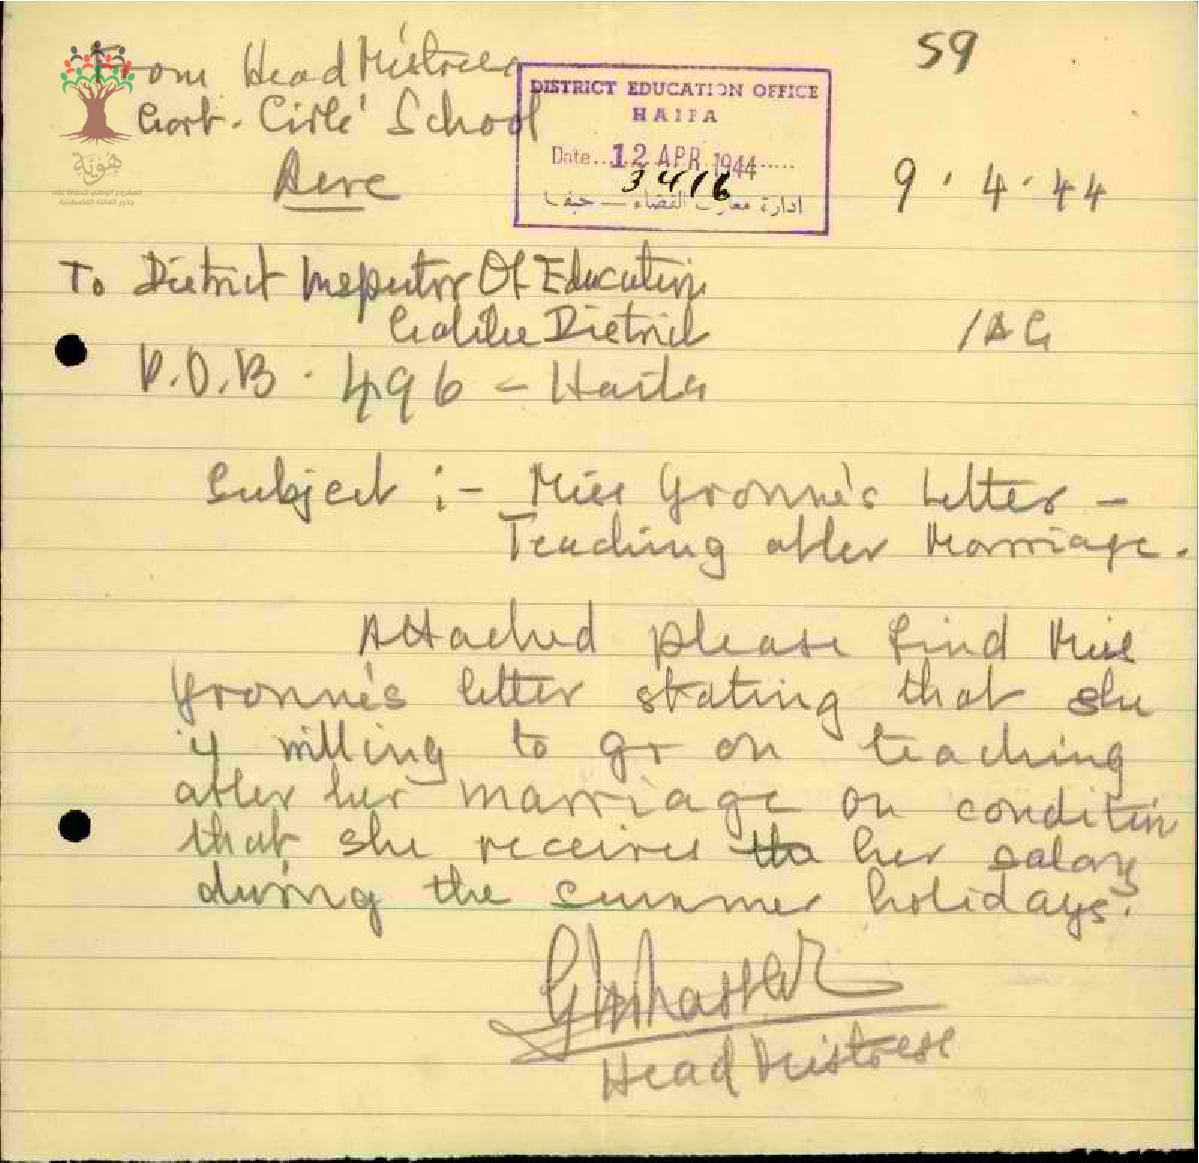 59
From Head Mistress
Govt. Girls' School
Acre
DISTRICT EDUCATION OFFICE
HAIFA
Date..12 APR 1944.....
3416
ادارة معارف القضاء — حيفا
9.4.44
To District Inspector Of Education
Galilee District
/AG
P.O.B. 496 - Haifa
Subject :- Miss Yvonne's Letter -
Teaching after Marriage.
Attached please find Miss
Yvonne's letter stating that she
is willing to go on teaching
after her marriage on condition
that she receives her salary
during the summer holidays.
Head Mistress
هُوِيَّة
المشروع الوطني للحفاظ على
جذور العائلة الفلسطينية